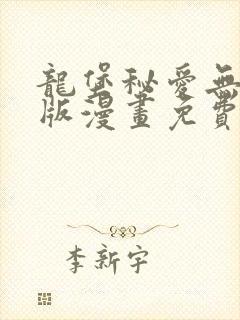 龍堡秘愛無
版漫畫免費
李新宇